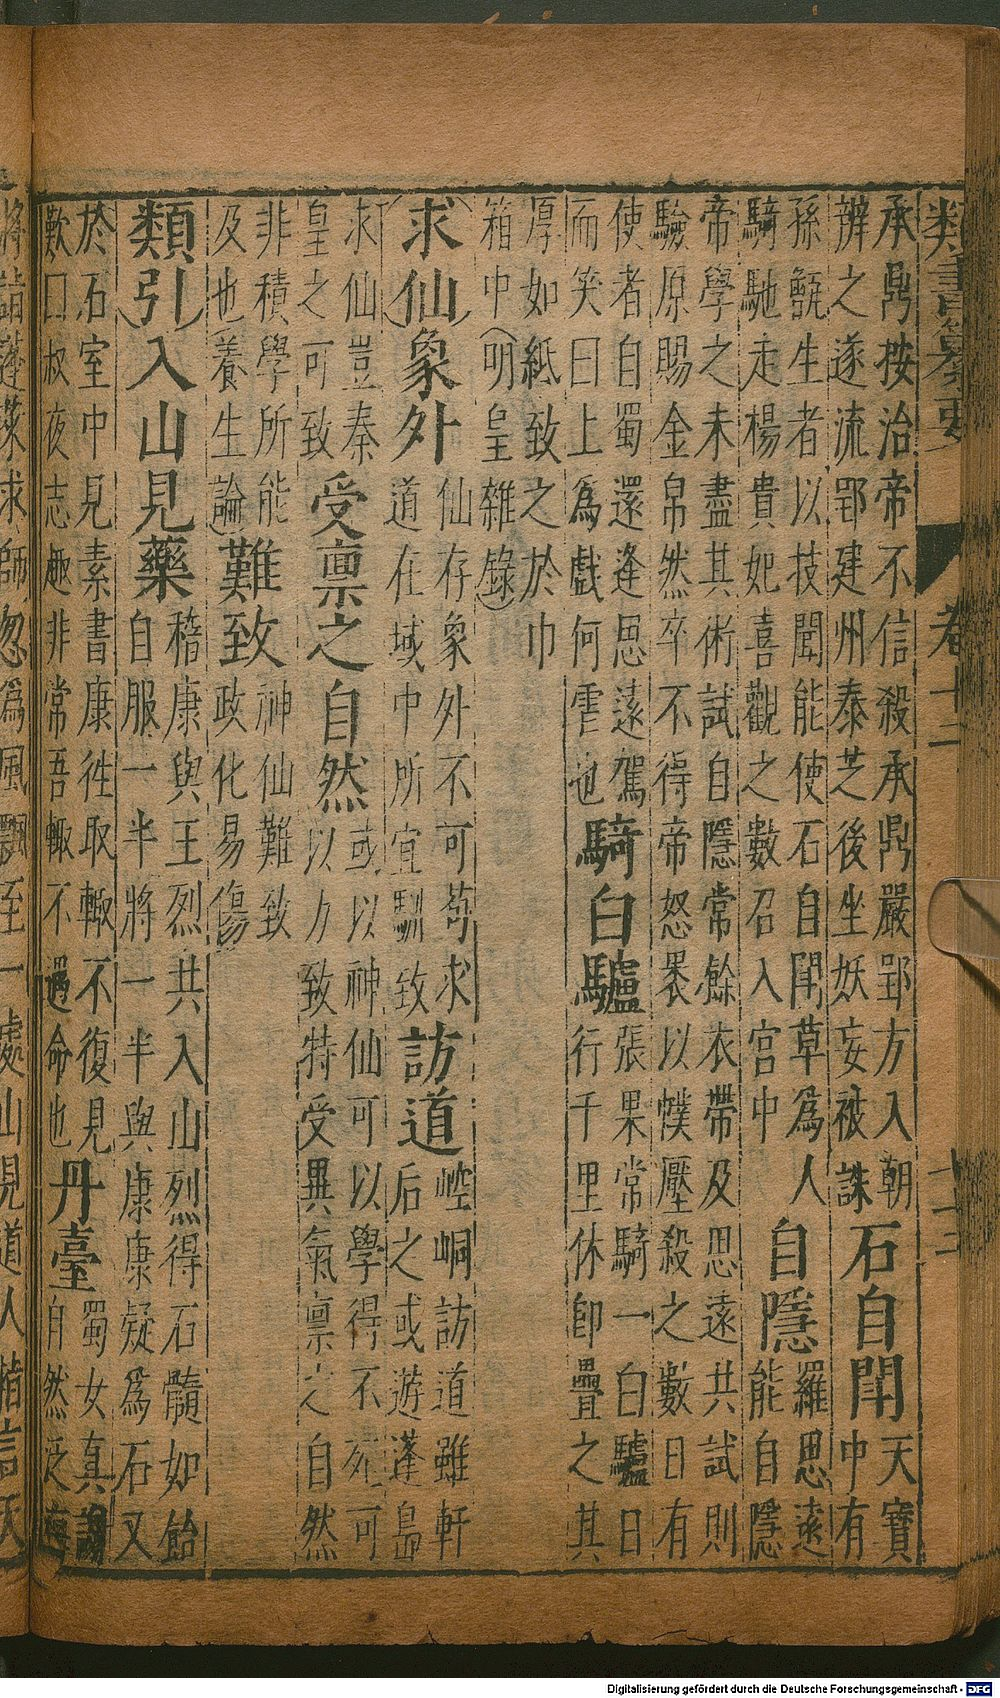 類書纂要 卷十二 十三
承鼎按治帝不信殺承鼎嚴郢方入朝
辨之遂流郢建州泰芝後坐妖妄被誅
石自鬥
天寶
中有
孫甑生者以技聞能使石自鬥草爲人
騎馳走楊貴妃喜觀之數召入宮中
自隱
羅思遠
能自隱
帝學之未盡其術試自隱常餘衣帶及思遠共試則
驗原賜金帛然卒不得帝怒裹以幞壓殺之數日有
使者自蜀還逢思遠駕
而笑曰上爲戲何虐也
騎白驢
張果常騎一白驢日
行千里休卽疊之其
厚如紙致之於巾
箱中(明皇雜錄)
求仙
象外
仙存象外不可苟求
道在域中所宜馴致
訪道
崆峒訪道雖軒
后之或遊蓬島
求仙豈秦
皇之可致
受禀之自然
或以神仙可以學得不死可
以力致特受異氣禀之自然
非積學所能
及也(養生論)
難致
神仙難致
政化易傷
類引
入山見藥
稽康與王烈共入山烈得石髓如飴
自服一半將一半與康康疑爲石又
於石室中見素書康徃取輙不復見
歎曰叔夜志趣非常吾輙不遇命也
丹臺
蜀女真謝
自然泛海
將詣蓬萊求師忽爲風飄至一處山見道人指言天
Digitalisierung gefördert durch die Deutsche Forschungsgemeinschaft - DFG